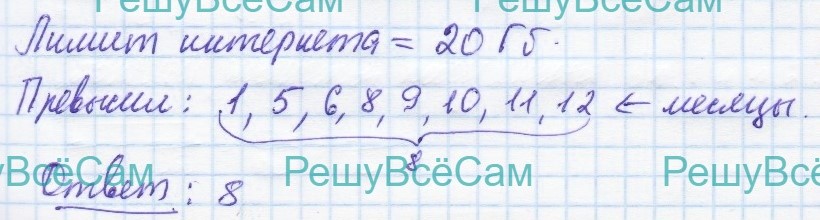 РешуВсёСам РешуВсёСам
Лимит интернета = 20 Гб.
Превысил: 1, 5, 6, 8, 9, 10, 11, 12 ← месяцы.
8
РешуВсёСам РешуВсёСам РешуВсё
Ответ: 8